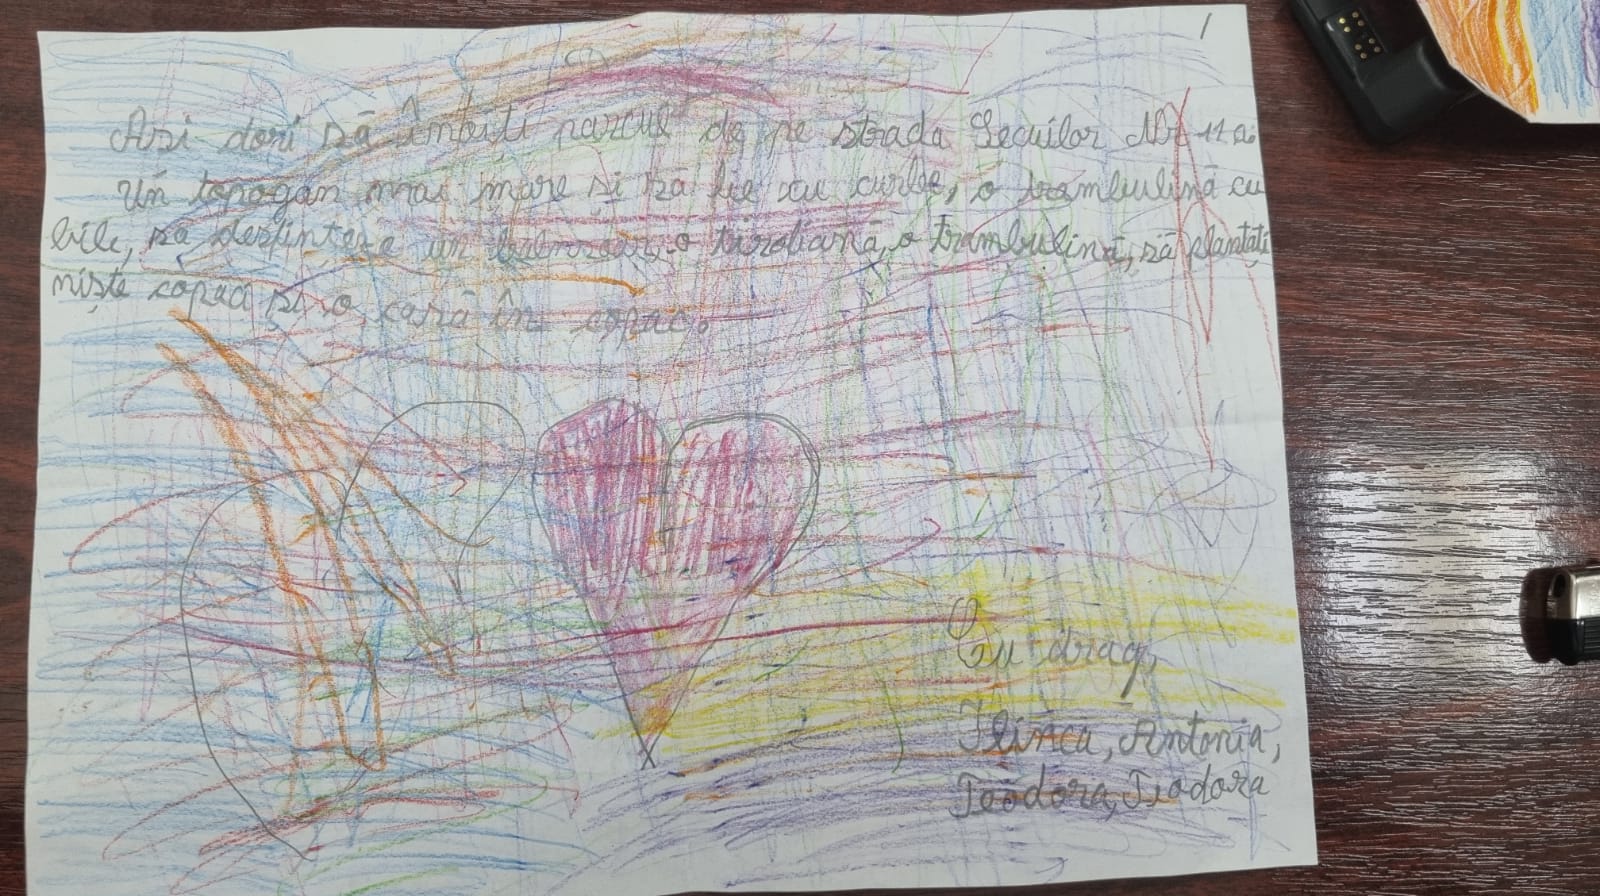 1
Asi dori să îmbiți parcul de pe strada Secuilor Nr 11 a
Un topogan mai mare și să fie cu curbe, o trambulină cu
bile, să desfințeze un balansoar, o tiroliană, o trambulină, să plantați
niște copaci și o casă în copac.
Cu drag,
Ilinca, Antonia,
Teodora, Teodora